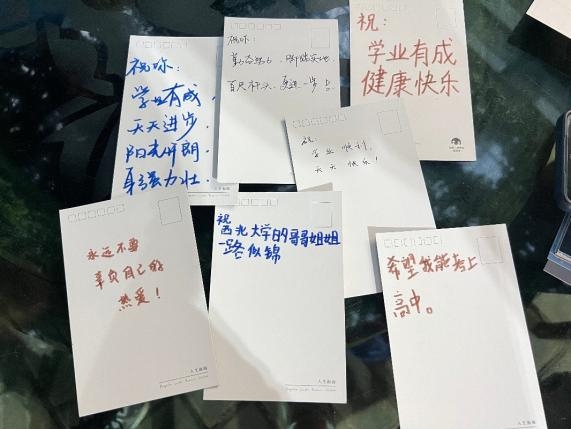 祝你:
学业有成,
天天进步,
阳光开朗,
身强力壮.
祝你:
脚踏实地.
百尺杆头,更进一步!
祝:
学业有成
健康快乐
祝:
学业顺利,
天天快乐!
永远不要
辜负自己的
热爱!
祝
西北大学的哥哥姐姐
一路似锦
希望我能考上
高中。